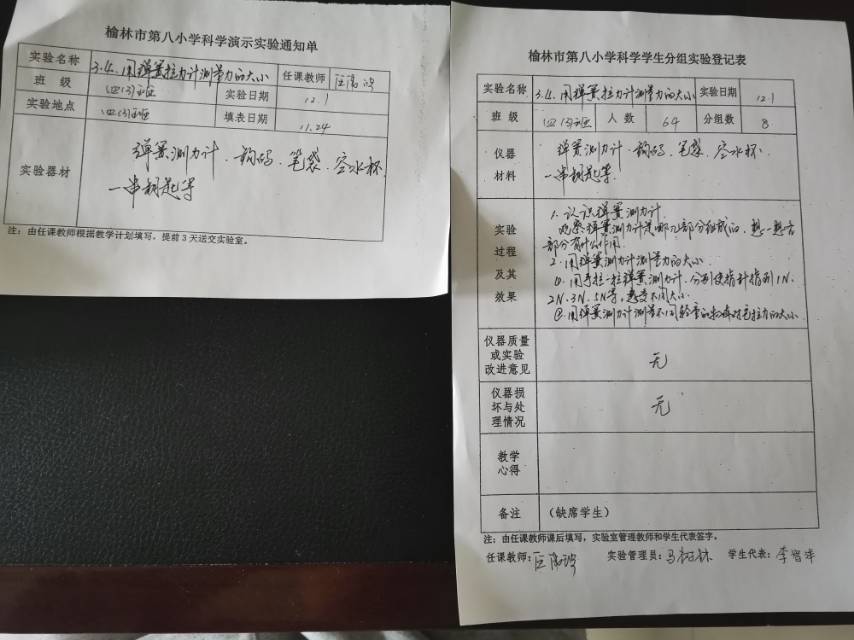 榆林市第八小学科学演示实验通知单
实验名称 3.4.用弹簧拉力计测量力的大小 任课教师
班 级 四(3)班 实验日期 12.1
实验地点 四(3)班 填表日期 11.24
实验器材 弹簧测力计、钩码、笔袋、空水杯
一串钥匙等
注:由任课教师根据教学计划填写,提前3天送交实验室。
榆林市第八小学科学学生分组实验登记表
实验名称 3.4.用弹簧拉力计测量力的大小 实验日期 12.1
班 级 四(3)班 人 数 64 分组数 8
仪器
材料
弹簧测力计、钩码、笔袋、空水杯.
一串钥匙等.
实验
过程
及其
效果
1.认识弹簧测力计
观察弹簧测力计是哪几部分组成的,想一想各
部分有什么作用.
2.用弹簧测力计测量力的大小
①用手拉一拉弹簧测力计,分别使指针指到1N、
2N、3N、5N等,感受不同大小.
②用弹簧测力计测量不同轻重的物体对它拉力的大小
仪器质量
或实验
改进意见
无
仪器损
坏与处
理情况
无
教学
心得
备注 (缺席学生)
注:由任课教师课后填写,实验室管理教师和学生代表签字。
任课教师: 实验管理员: 学生代表: